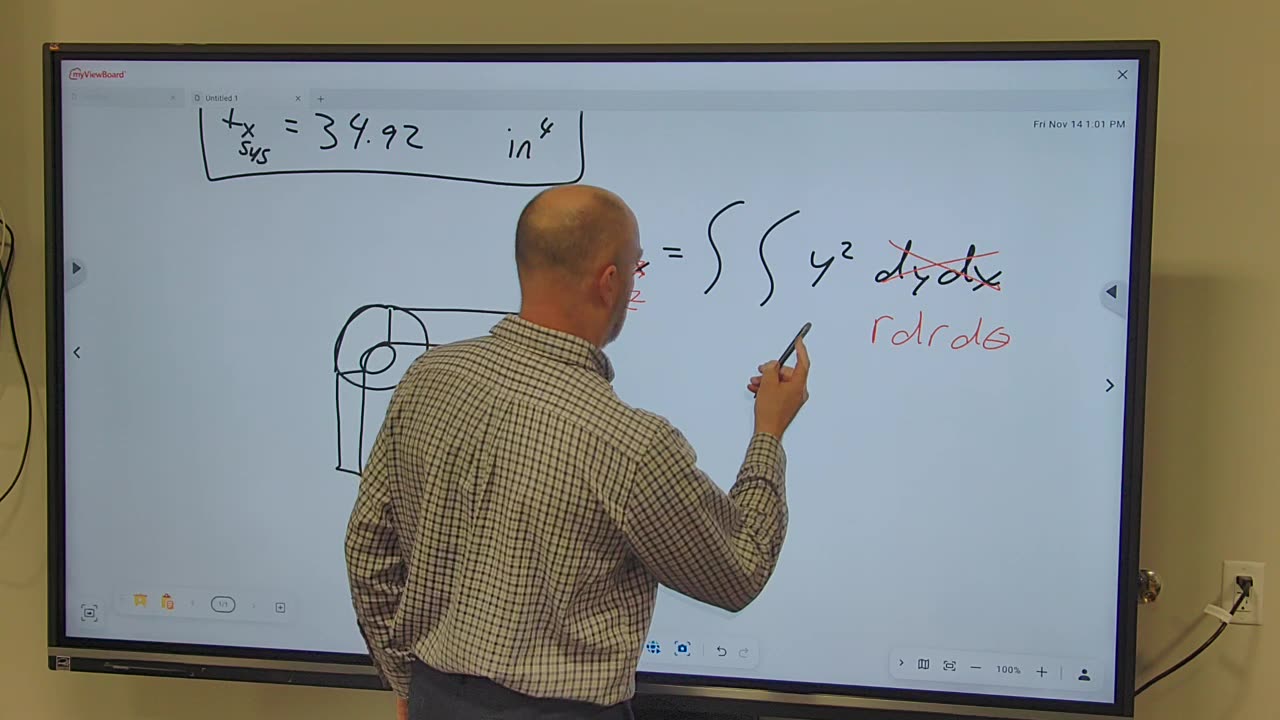 myViewBoard
Untitled 1
Fri Nov 14 1:01 PM
Ix = 34.92 in⁴
sys
x = ∫ ∫ y² dy dx
2
r dr dθ
1/1
100%